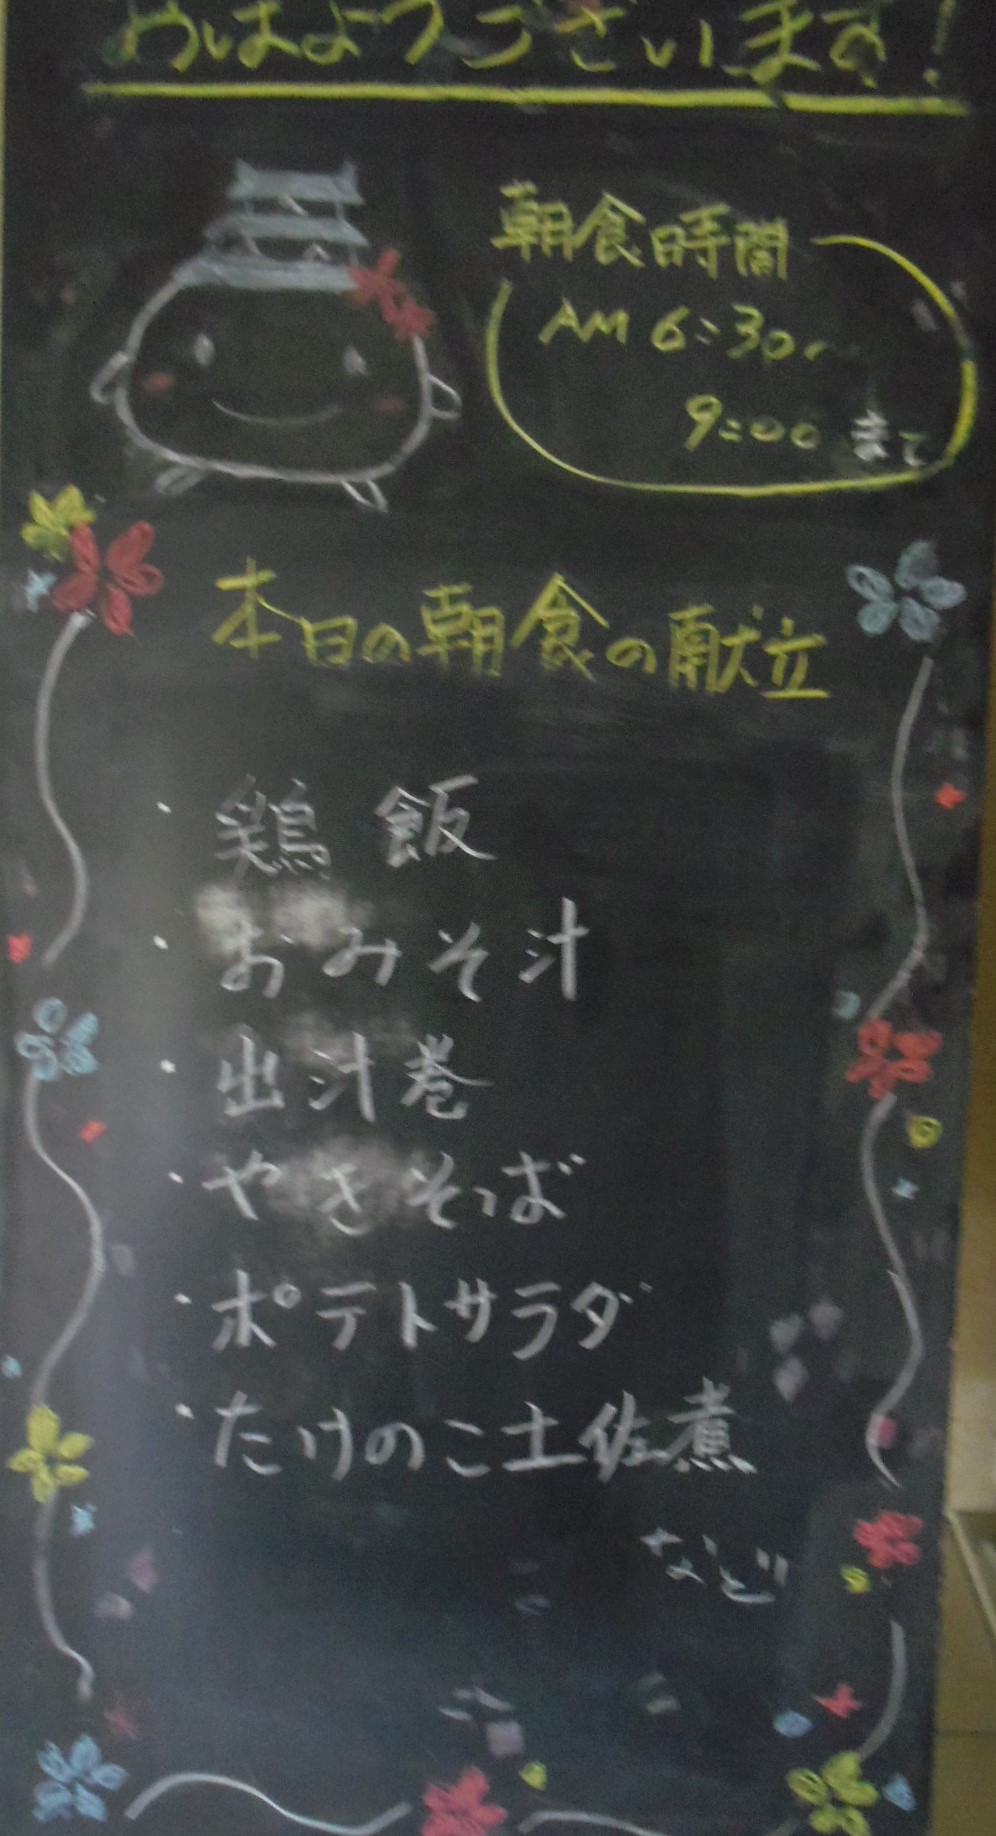 おはようございます!
朝食時間
AM 6:30〜
9:00 まで
本日の朝食の献立
・鶏飯
・おみそ汁
・出汁巻
・やきそば
・ポテトサラダ
・たけのこ土佐煮
など